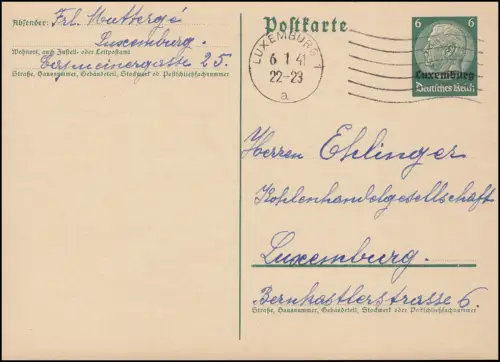 Absender: Frl. Mettergé
Luxemburg.
Wohnort, auch Zustell- oder Leitpostamt
25.
Straße, Hausnummer, Gebäudeteil, Stockwerk od. Postschließfachnummer
Postkarte
LUXEMBURG 1
6 1 41
22-23
a
6 6
Luxemburg
Deutsches Reich
Herren Ehlinger
Kohlenhandelgesellschaft
Luxemburg.
Bernkastlerstrasse 6.
Straße, Hausnummer, Gebäudeteil, Stockwerk oder Postschließfachnummer